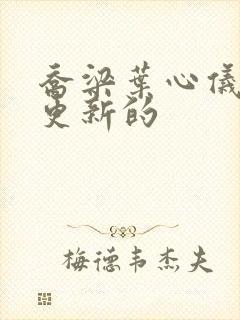 乔梁葉心儀
更新的
梅德韦杰夫